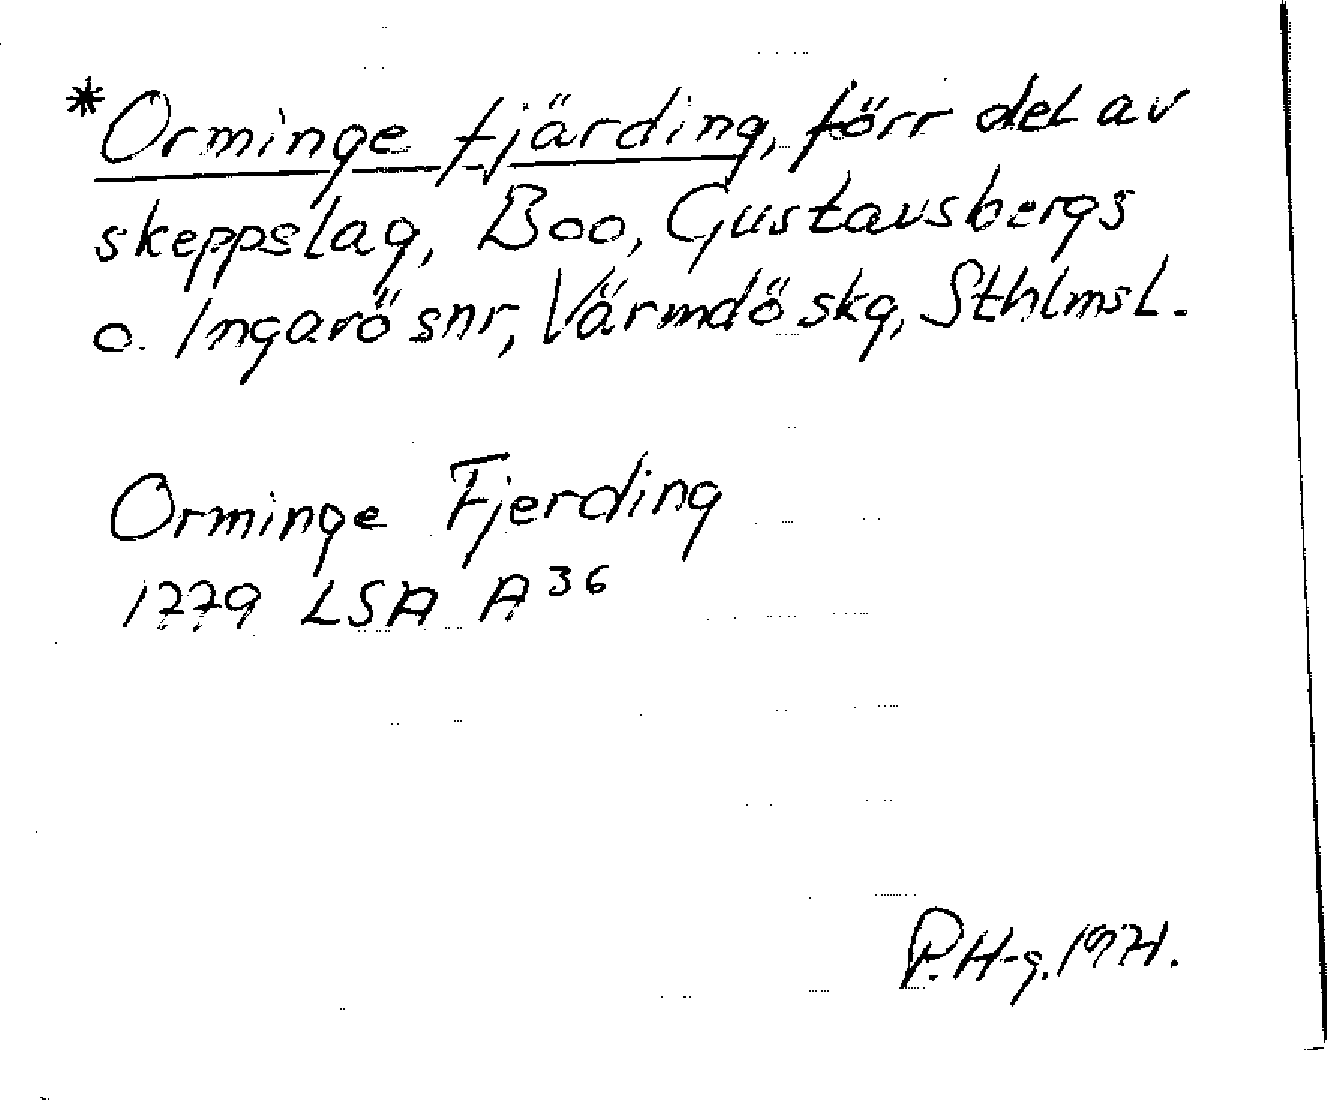 *Orminge fjärding, förr del av
skeppslag, Boo, Gustavsbergs
o. Ingarö snr, Värmdö skg, Sthlms l.
Orminge Fjerding
1779 LSA A 36
P. H-g. 1971.